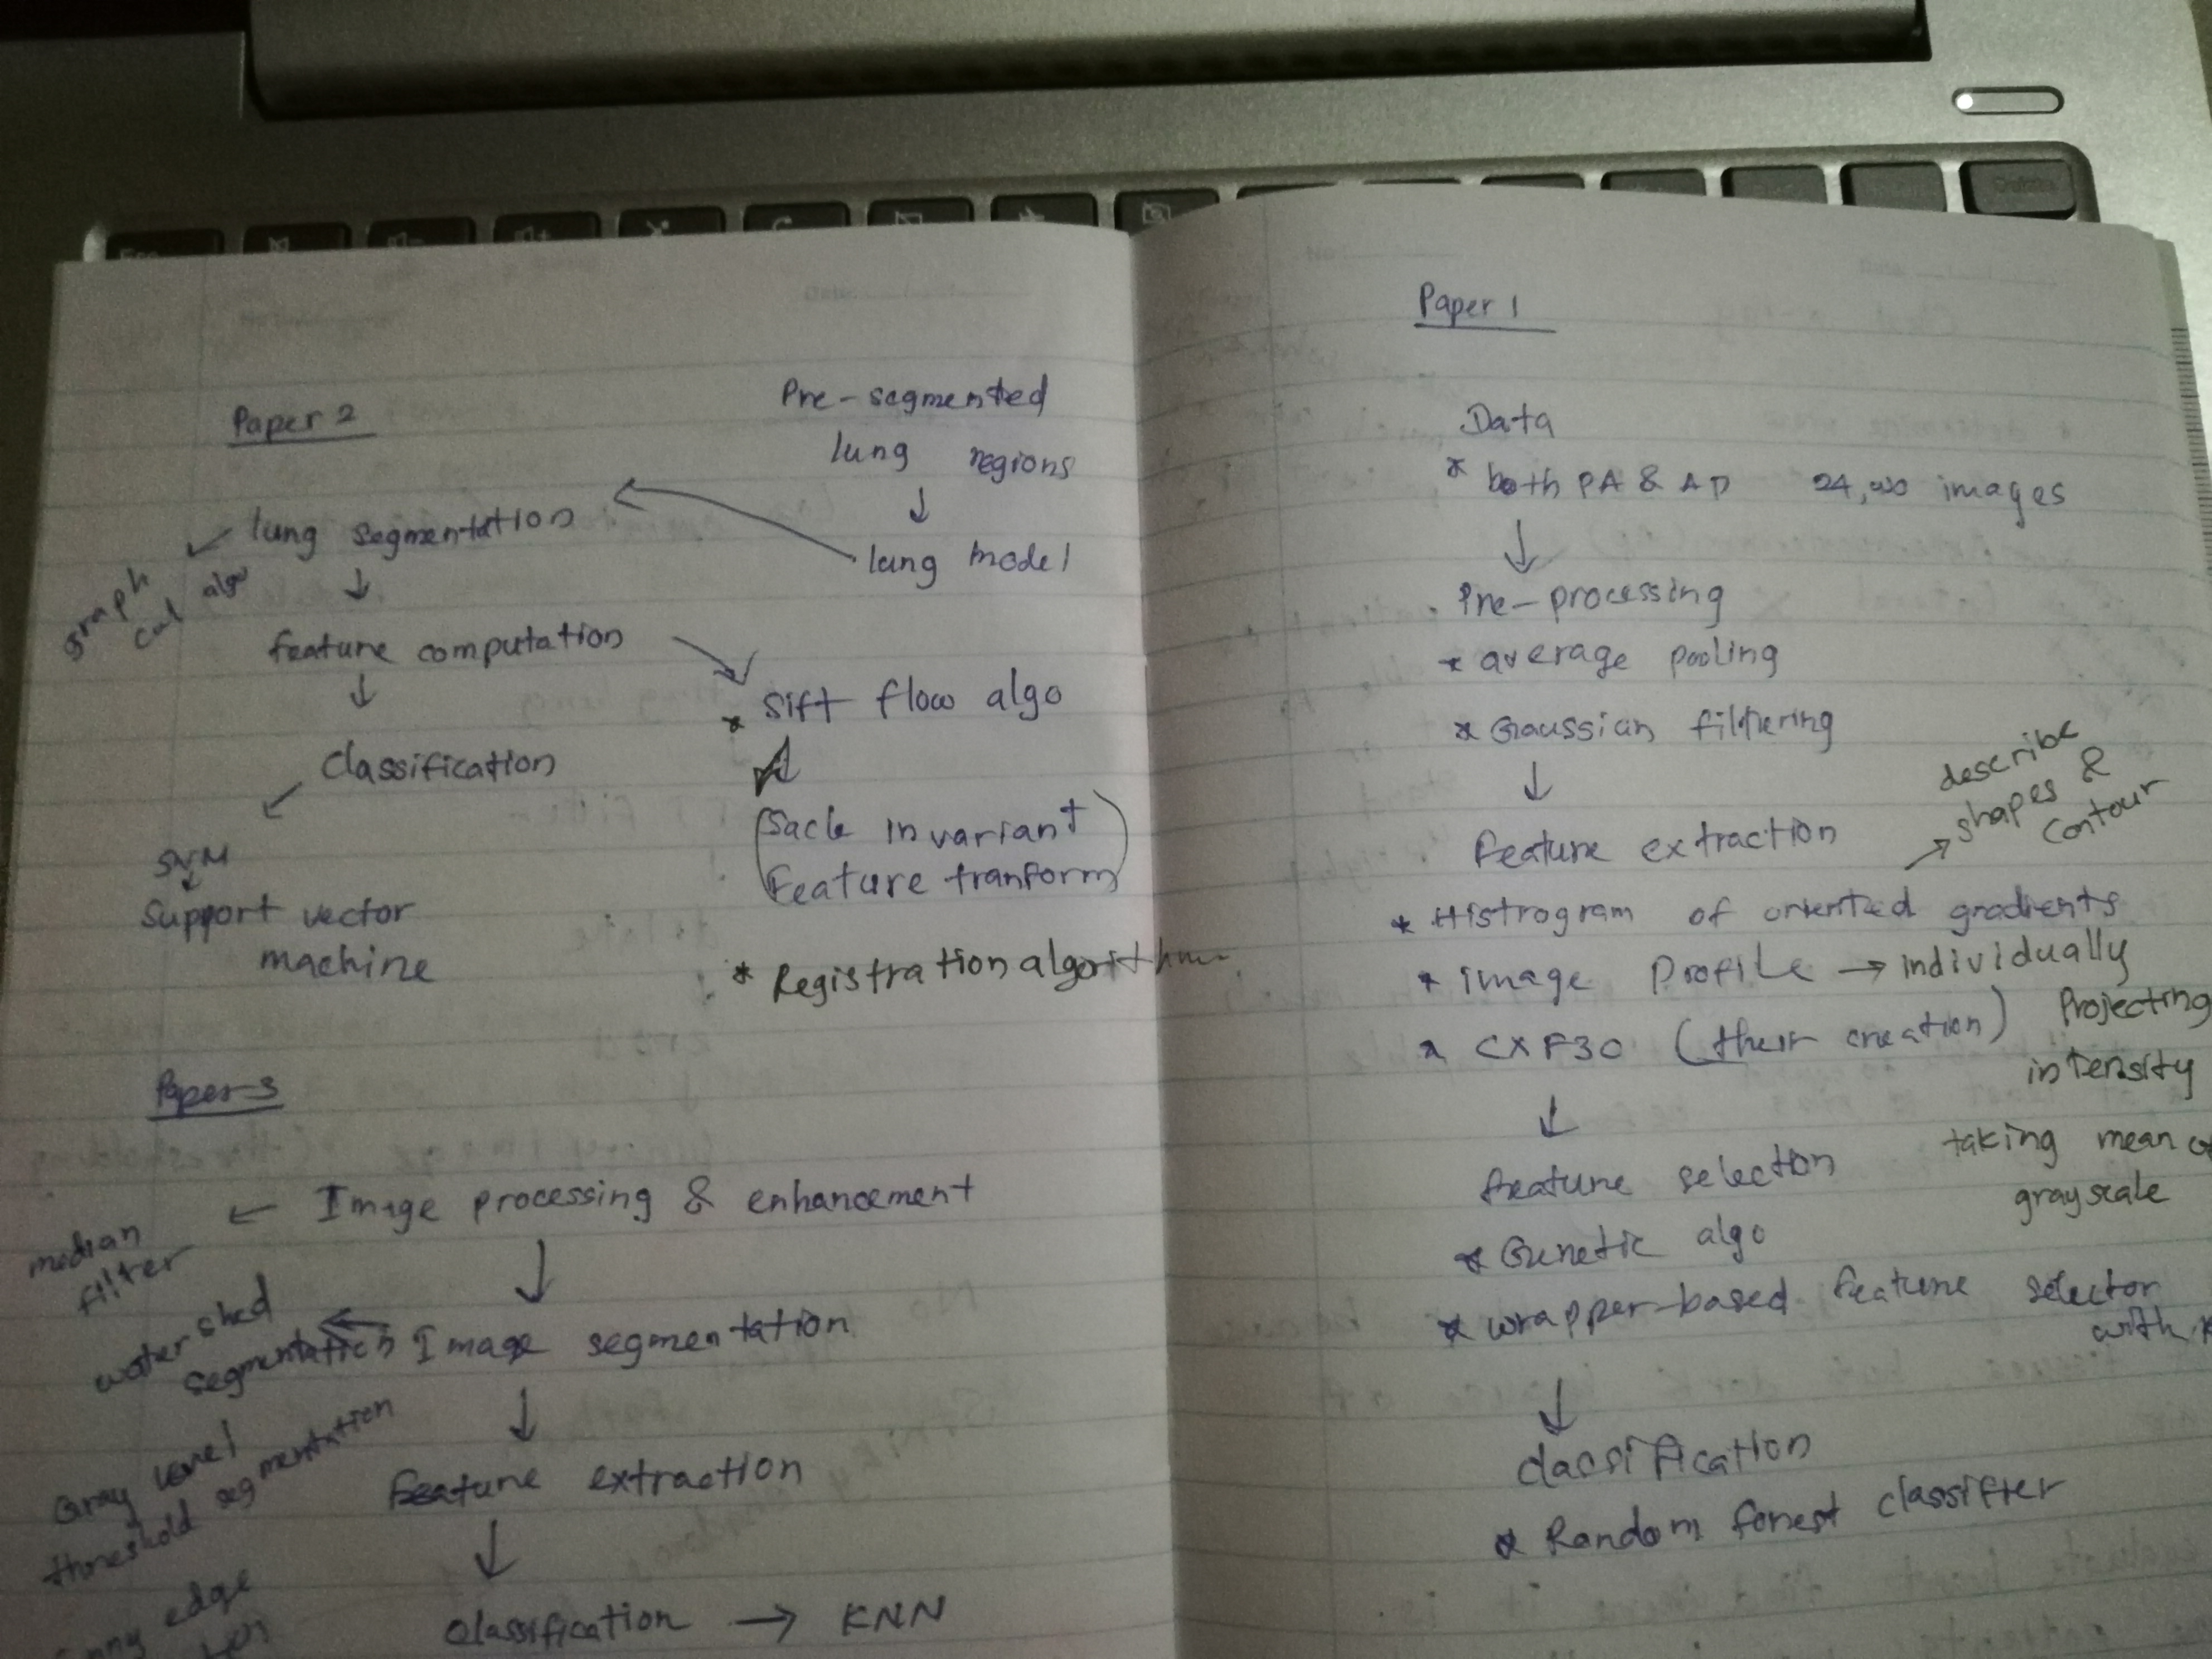 Paper 2
Pre-segmented
lung regions
lung model
lung segmentation
graph
cut algo
feature computation
* Sift flow algo
(Sacle invariant
Feature tranform)
* Registration algorithm
Classification
SVM
Support vector
machine
Paper 3
Image processing & enhancement
median
filter
Image segmentation
water shed
segmentation
Gray level
threshold segmentation
edge
Feature extraction
Classification → KNN
Paper 1
Data
* both PA & AP images
Pre-processing
* average pooling
* Gaussian filtering
Feature extraction
describe
shapes &
contour
* Histrogram of oriented gradients
* Image Profile → individually
Projecting
intensity
* CXF30 (their creation)
taking mean of
grayscale
Feature selection
* Genetic algo
* wrapper-based feature selector
with
Classification
* Random forest classifier